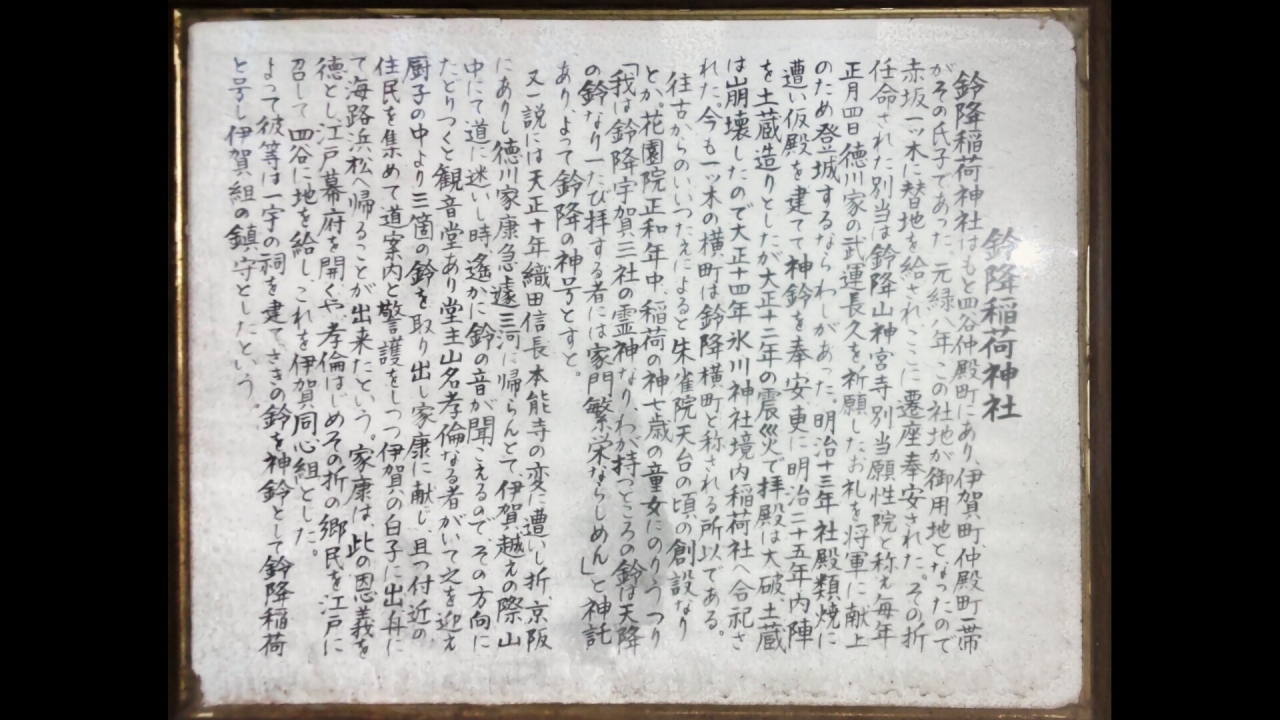 鈴降稲荷神社
鈴降稲荷神社はもと四谷仲殿町にあり、伊賀町仲殿町一帯
がその氏子であった。元緑八年、この社地が御用地となったので
赤坂一ッ木に替地を給されここに遷座奉安された。その折
任命された別当は鈴降山神宮寺別当願性院と称え毎年
正月四日徳川家の武運長久を祈願したお礼を将軍に献上
のため登城するならわしがあった。明治十三年社殿類焼に
遭い仮殿を建てて神鈴を奉安、更に明治二十五年内陣
を土蔵造りとしたが大正十二年の震災で拝殿は大破土蔵
は崩壊したので大正十四年氷川神社境内稲荷社へ合祀さ
れた。今も一ッ木の横町は鈴降横町と称される所以である。
往古からのいいつたえによると朱雀院天台の頃の創設なり
とか。花園院正和年中、稲荷の神七歳の童女にのりうつり
「我は鈴降宇賀三社の霊神なり、わが持つところの鈴は天降
の鈴なり一たび拝する者には家門繁栄ならしめん」と神託
あり、よって鈴降の神号とすと。
又一説には天正十年織田信長本能寺の変に遭いし折、京阪
にありし徳川家康急遽三河に帰らんとて伊賀越えの際山
中にて道に迷いし時、遙かに鈴の音が聞こえるのでその方向に
たどりつくと観音堂あり堂主山名孝倫なる者がいて之を迎え
厨子の中より三箇の鈴を取り出し家康に献じ、且つ付近の
住民を集めて道案内と警護をしつつ伊賀の白子に出舟に
て海路浜松へ帰ることが出来たという。家康は此の恩義を
徳とし、江戸幕府を開くや、孝倫はじめその折の郷民を江戸に
召して四谷に地を給し、これを伊賀同心組とした。
よって彼等は一宇の祠を建て、さきの鈴を神鈴として鈴降稲荷
と号し伊賀組の鎮守としたという。